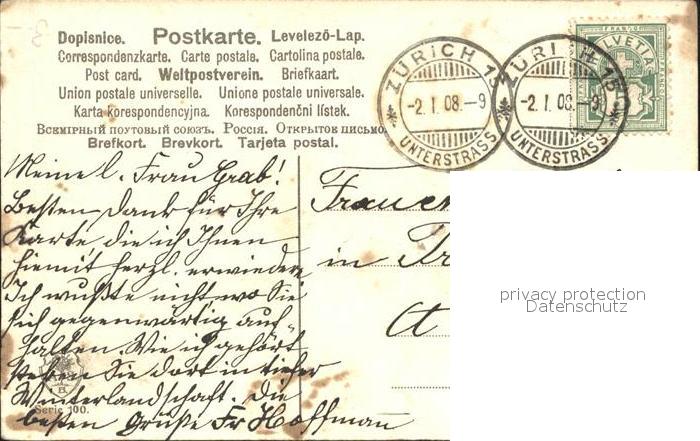 Dopisnice. Postkarte. Levelező-Lap.
Correspondenzkarte. Carte postale. Cartolina postale.
Post card. Weltpostverein. Briefkaart.
Union postale universelle. Unione postale universale.
Karta korespondencyjna. Korespondenční lístek.
Всемірный почтовый союзъ. Россія. Открытое письмо
Brefkort. Brevkort. Tarjeta postal.
ZÜRICH 15
-2.I.08.-9
UNTERSTRASS
ZÜRICH 15
-2.I.08.-9
UNTERSTRASS
FRANCO
HELVETIA
Meine l. Frau Grab!
Besten Dank für Ihre
Karte, die ich Ihnen
hiemit herzl. erwiedere
Ich wußte nicht wo Sie
sich gegenwärtig auf-
halten. Wie ich gehört
stehen Sie dort in tiefer
Winterlandschaft. Die
besten Grüße Fr Hoffmann
Serie 100.
Frauen
in
privacy protection
Datenschutz